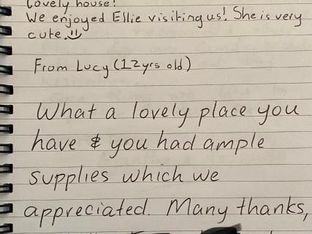 Lovely house!
We enjoyed Ellie visiting us! She is very
cute.
From Lucy (12yrs old)
What a lovely place you
have & you had ample
supplies which we
appreciated. Many thanks,